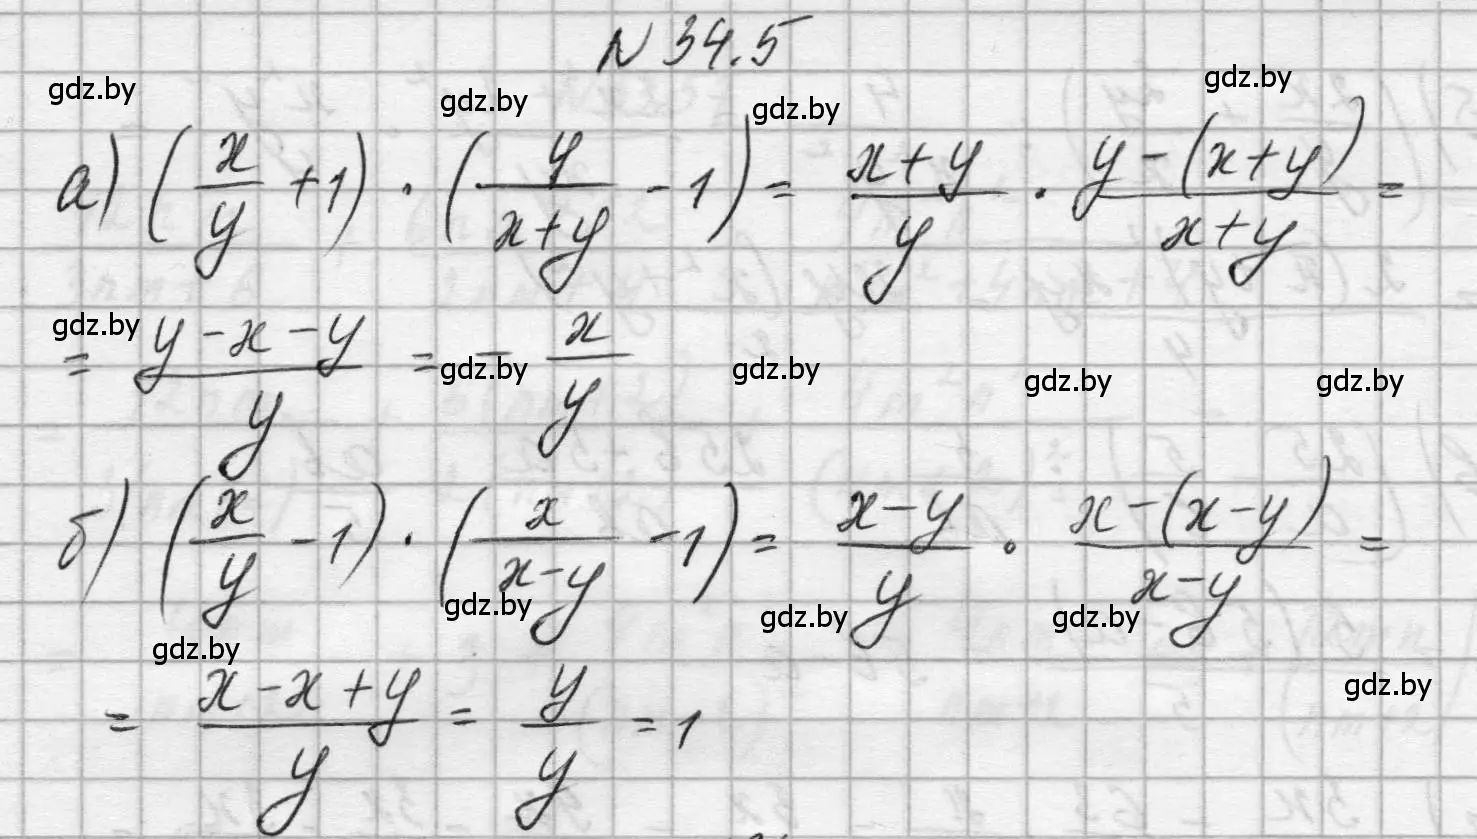 N 34.5
gdz.by gdz.by gdz.by gdz.by
а) (x/y + 1) · (y/(x+y) - 1) = (x+y)/y · (y-(x+y))/(x+y) =
gdz.by gdz.by gdz.by gdz.by gdz.by
= (y-x-y)/y = - x/y
б) (x/y - 1) · (x/(x-y) - 1) = (x-y)/y · (x-(x-y))/(x-y) =
gdz.by gdz.by gdz.by gdz.by gdz.by
= (x-x+y)/y = y/y = 1